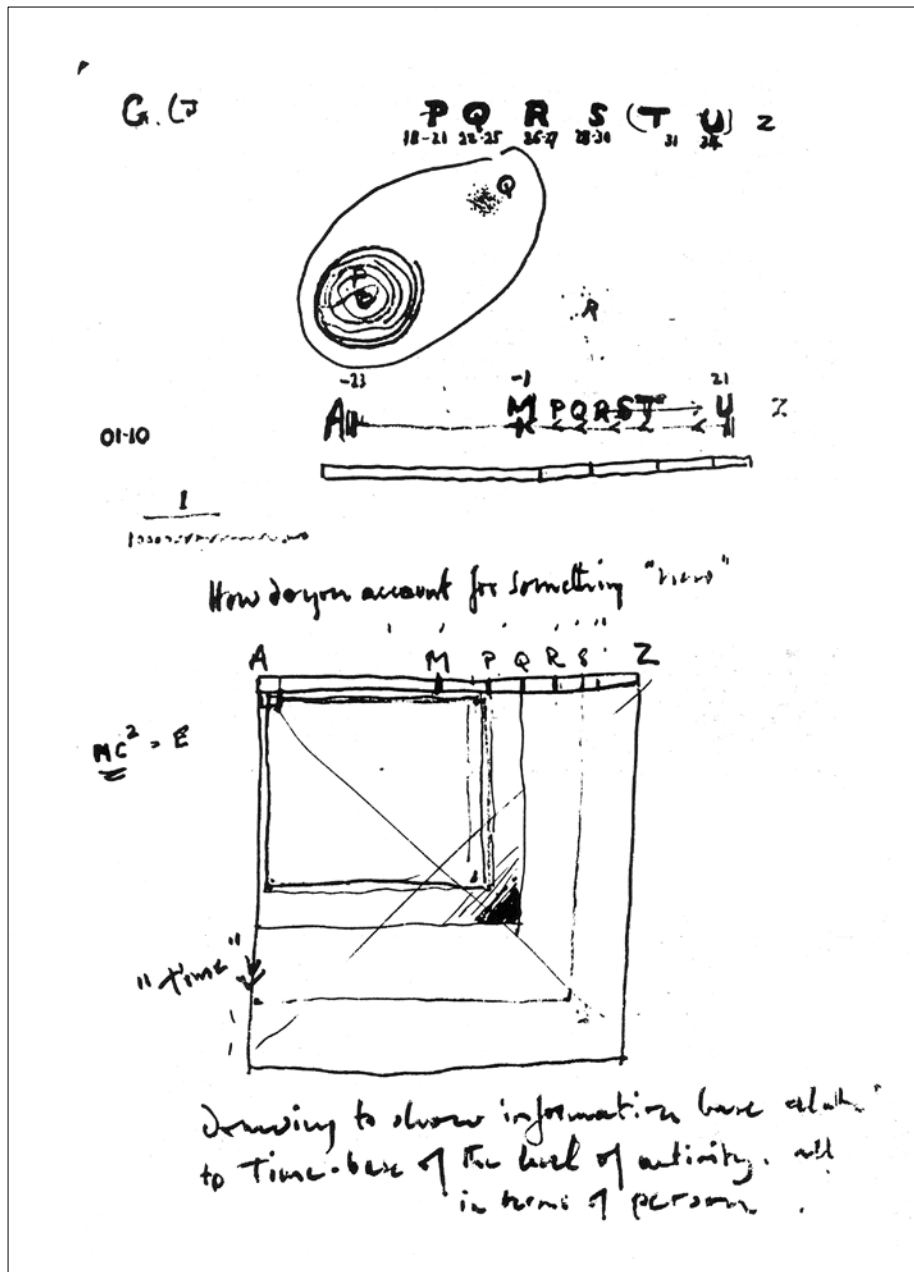 G. (
P Q R S (T U) Z
18-21 22-25 26-27 28-30 31 34
Q
P
R
-23 -1 21
A M P Q R S T U Z
01-10
1
How do you account for something "new"
A M P Q R S Z
MC² = E
"time"
Drawing to show information base
to Time-base of the level of activity.
in terms of person.